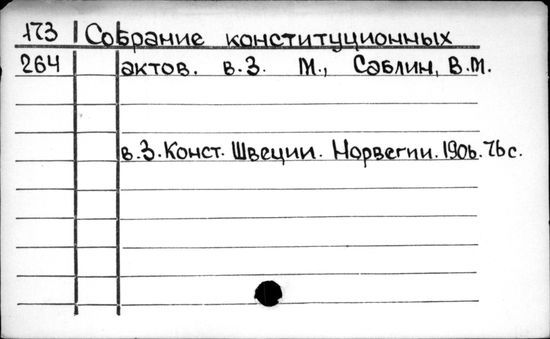 173 Собрание конституционных
264 актов. в.3. М., Саблин, В.М.
в.3. Конст. Швеции. Норвегии. 1906. 76 с.